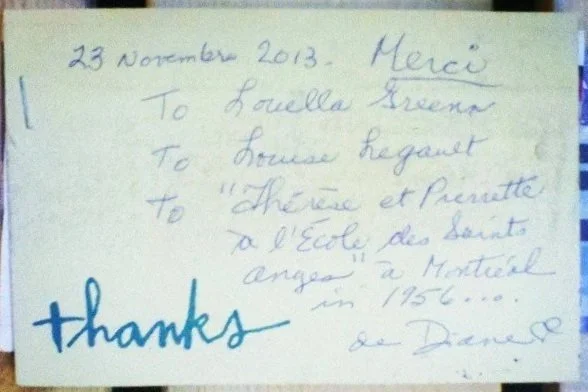 23 Novembre 2013. Merci
To Louella Greene
To Louise Legault
To "Thérèse et Pierrette
à l'École des Saints
anges" à Montréal
in 1956....
thanks
de Diane